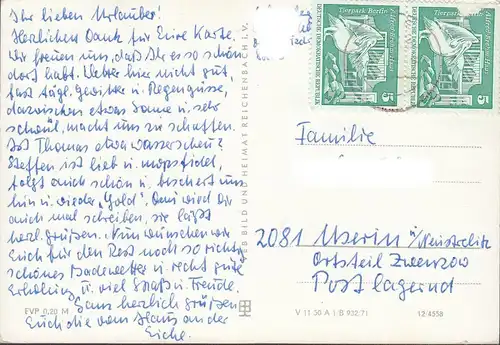 Ihr lieben Urlauber!
Herzlichen Dank für Eure Karte.
Wir freuen uns, daß Ihr es so schön
dort habt. Wetter hier nicht gut,
fast tägl. Gewitter u. Regengüsse,
dazwischen etwas Sonne u. sehr
schwül, macht uns zu schaffen.
Ist Thomas etwa wasserscheu?
Steffen ist lieb u. mopsfidel,
folgt auch schön u. beschert uns
hin u. wieder „Gold". Omi wird Dir
auch mal schreiben, sie läßt
herzl. grüßen. Nun wünschen wir
Euch für den Rest noch so richtig
schönes Badewetter u. recht gute
Erholung u. viel Spaß u. Freude.
Ganz herzlich grüßen
Euch die vom Haus an der
Eiche.
EVP 0,20 M
VEB BILD UND HEIMAT REICHENBACH i. V.
Tierpark Berlin
Alfred-Brehm-Haus
DEUTSCHE DEMOKRATISCHE REPUBLIK
5
Tierpark Berlin
Alfred-Brehm-Haus
DEUTSCHE DEMOKRATISCHE REPUBLIK
5
Familie
2081 Userin ü/Neustrelitz
Ortsteil Zwenzow
Postlagernd
V 11 50 A 1 B 932/71
12/4558